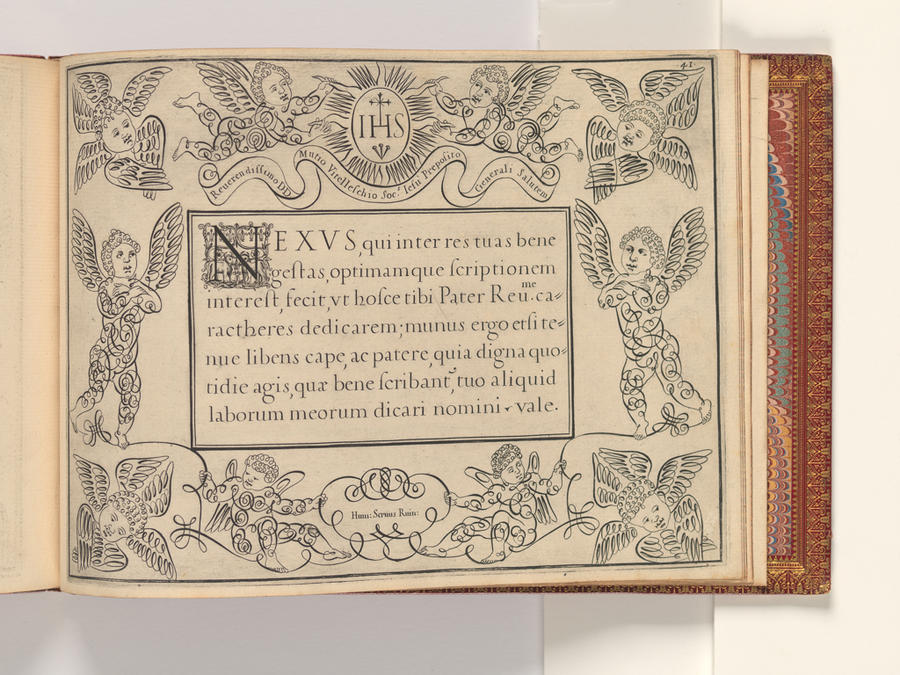 41
IHS
Reuerendissimo D.D.
Mutio Vitelleschio Soc.ᵗ Iesu Prepolito
Generali Salutem
NEXVS, qui inter res tuas bene
geſtas, optimamque ſcriptionem
intereſt, fecit, vt hoſce tibi Pater Reu.ᵐᵉ ca=
ractheres dedicarem; munus ergo etſi te=
nue libens cape, ac patere, quia digna quo=
tidie agis, quæ bene ſcribant, tuo aliquid
laborum meorum dicari nomini. vale.
Humː Seruus Ruinː